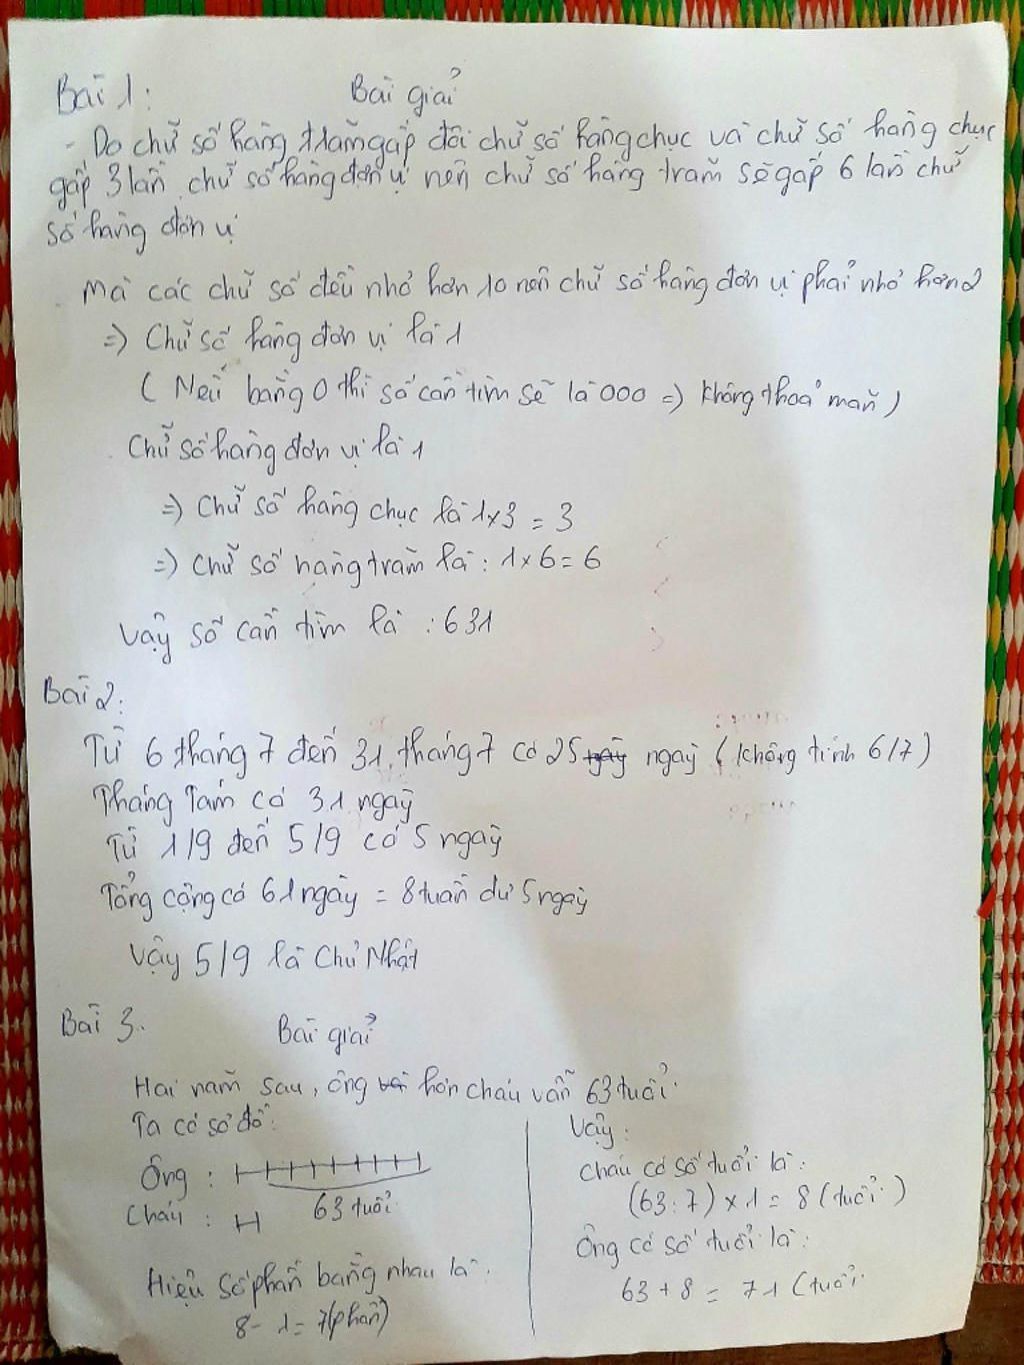 Bài 1:
Bài giải
- Do chữ số hàng trăm gấp đôi chữ số hàng chục và chữ số hàng chục
gấp 3 lần chữ số hàng đơn vị nên chữ số hàng trăm sẽ gấp 6 lần chữ
số hàng đơn vị
Mà các chữ số đều nhỏ hơn 10 nên chữ số hàng đơn vị phải nhỏ hơn 2
=> Chữ số hàng đơn vị là 1
( Nếu bằng 0 thì số cần tìm sẽ là 000 => không thoả mãn )
Chữ số hàng đơn vị là 1
=> Chữ số hàng chục là 1x3 = 3
=> Chữ số hàng trăm là : 1x6 = 6
Vậy số cần tìm là : 631
Bài 2:
Từ 6 tháng 7 đến 31 tháng 7 có 25 ngày ( không tính 6/7 )
Tháng Tám có 31 ngày
Từ 1/9 đến 5/9 có 5 ngày
Tổng cộng có 61 ngày = 8 tuần dư 5 ngày
Vậy 5/9 là Chủ Nhật
Bài 3.
Bài giải
Hai năm sau, ông hơn cháu vẫn 63 tuổi.
Ta có sơ đồ:
Ông :
63 tuổi
Cháu :
Hiệu số phần bằng nhau là:
8 - 1 = 7 (phần)
Vậy:
Cháu có số tuổi là:
(63 : 7) x 1 = 8 (tuổi)
Ông có số tuổi là:
63 + 8 = 71 (tuổi